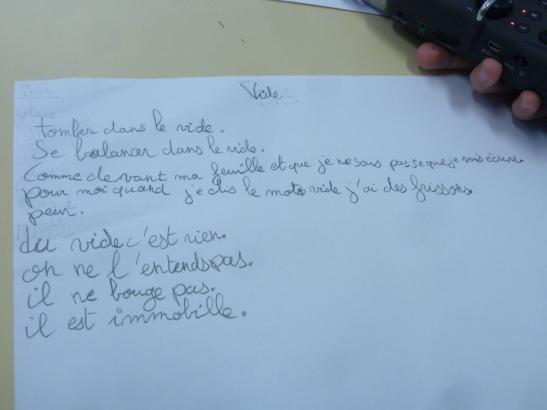 Vide
tomber dans le vide.
Se balancer dans le vide.
Comme devant ma feuille et que je ne sais pas se que je vais écrire.
pour moi quand je dis le mot vide j'ai des frissons.
peur.
du vide c'est rien.
on ne l'entends pas.
il ne bouge pas.
il est immobille.